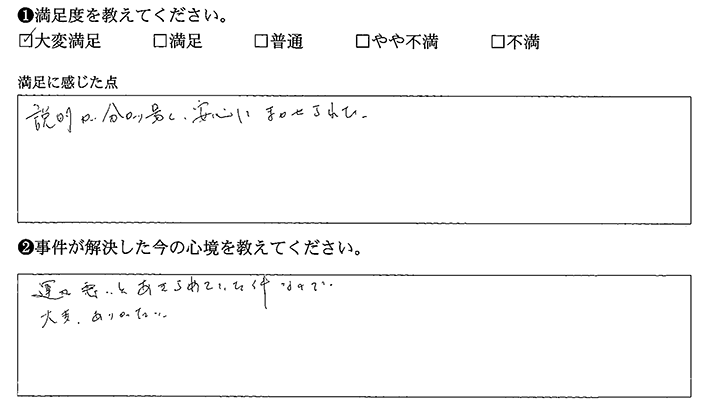 ❶満足度を教えてください。
☑大変満足 □満足 □普通 □やや不満 □不満
満足に感じた点
説明が分かり易く、安心しまかせられた。
❷事件が解決した今の心境を教えてください。
運が悪いとあきらめていた件なので、
大変、ありがたい。